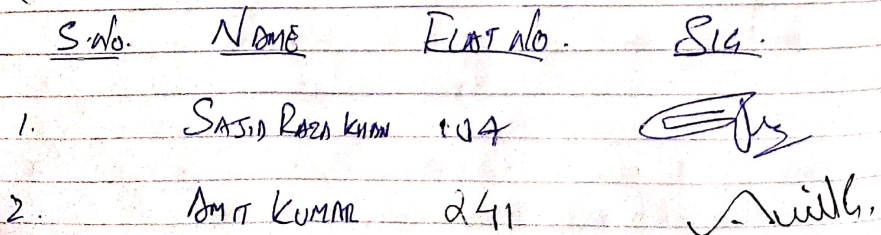 S.No. NAME FLAT No. SIG.
1. SAJID RAZA KHAN 104
2. AMIT KUMAR 241